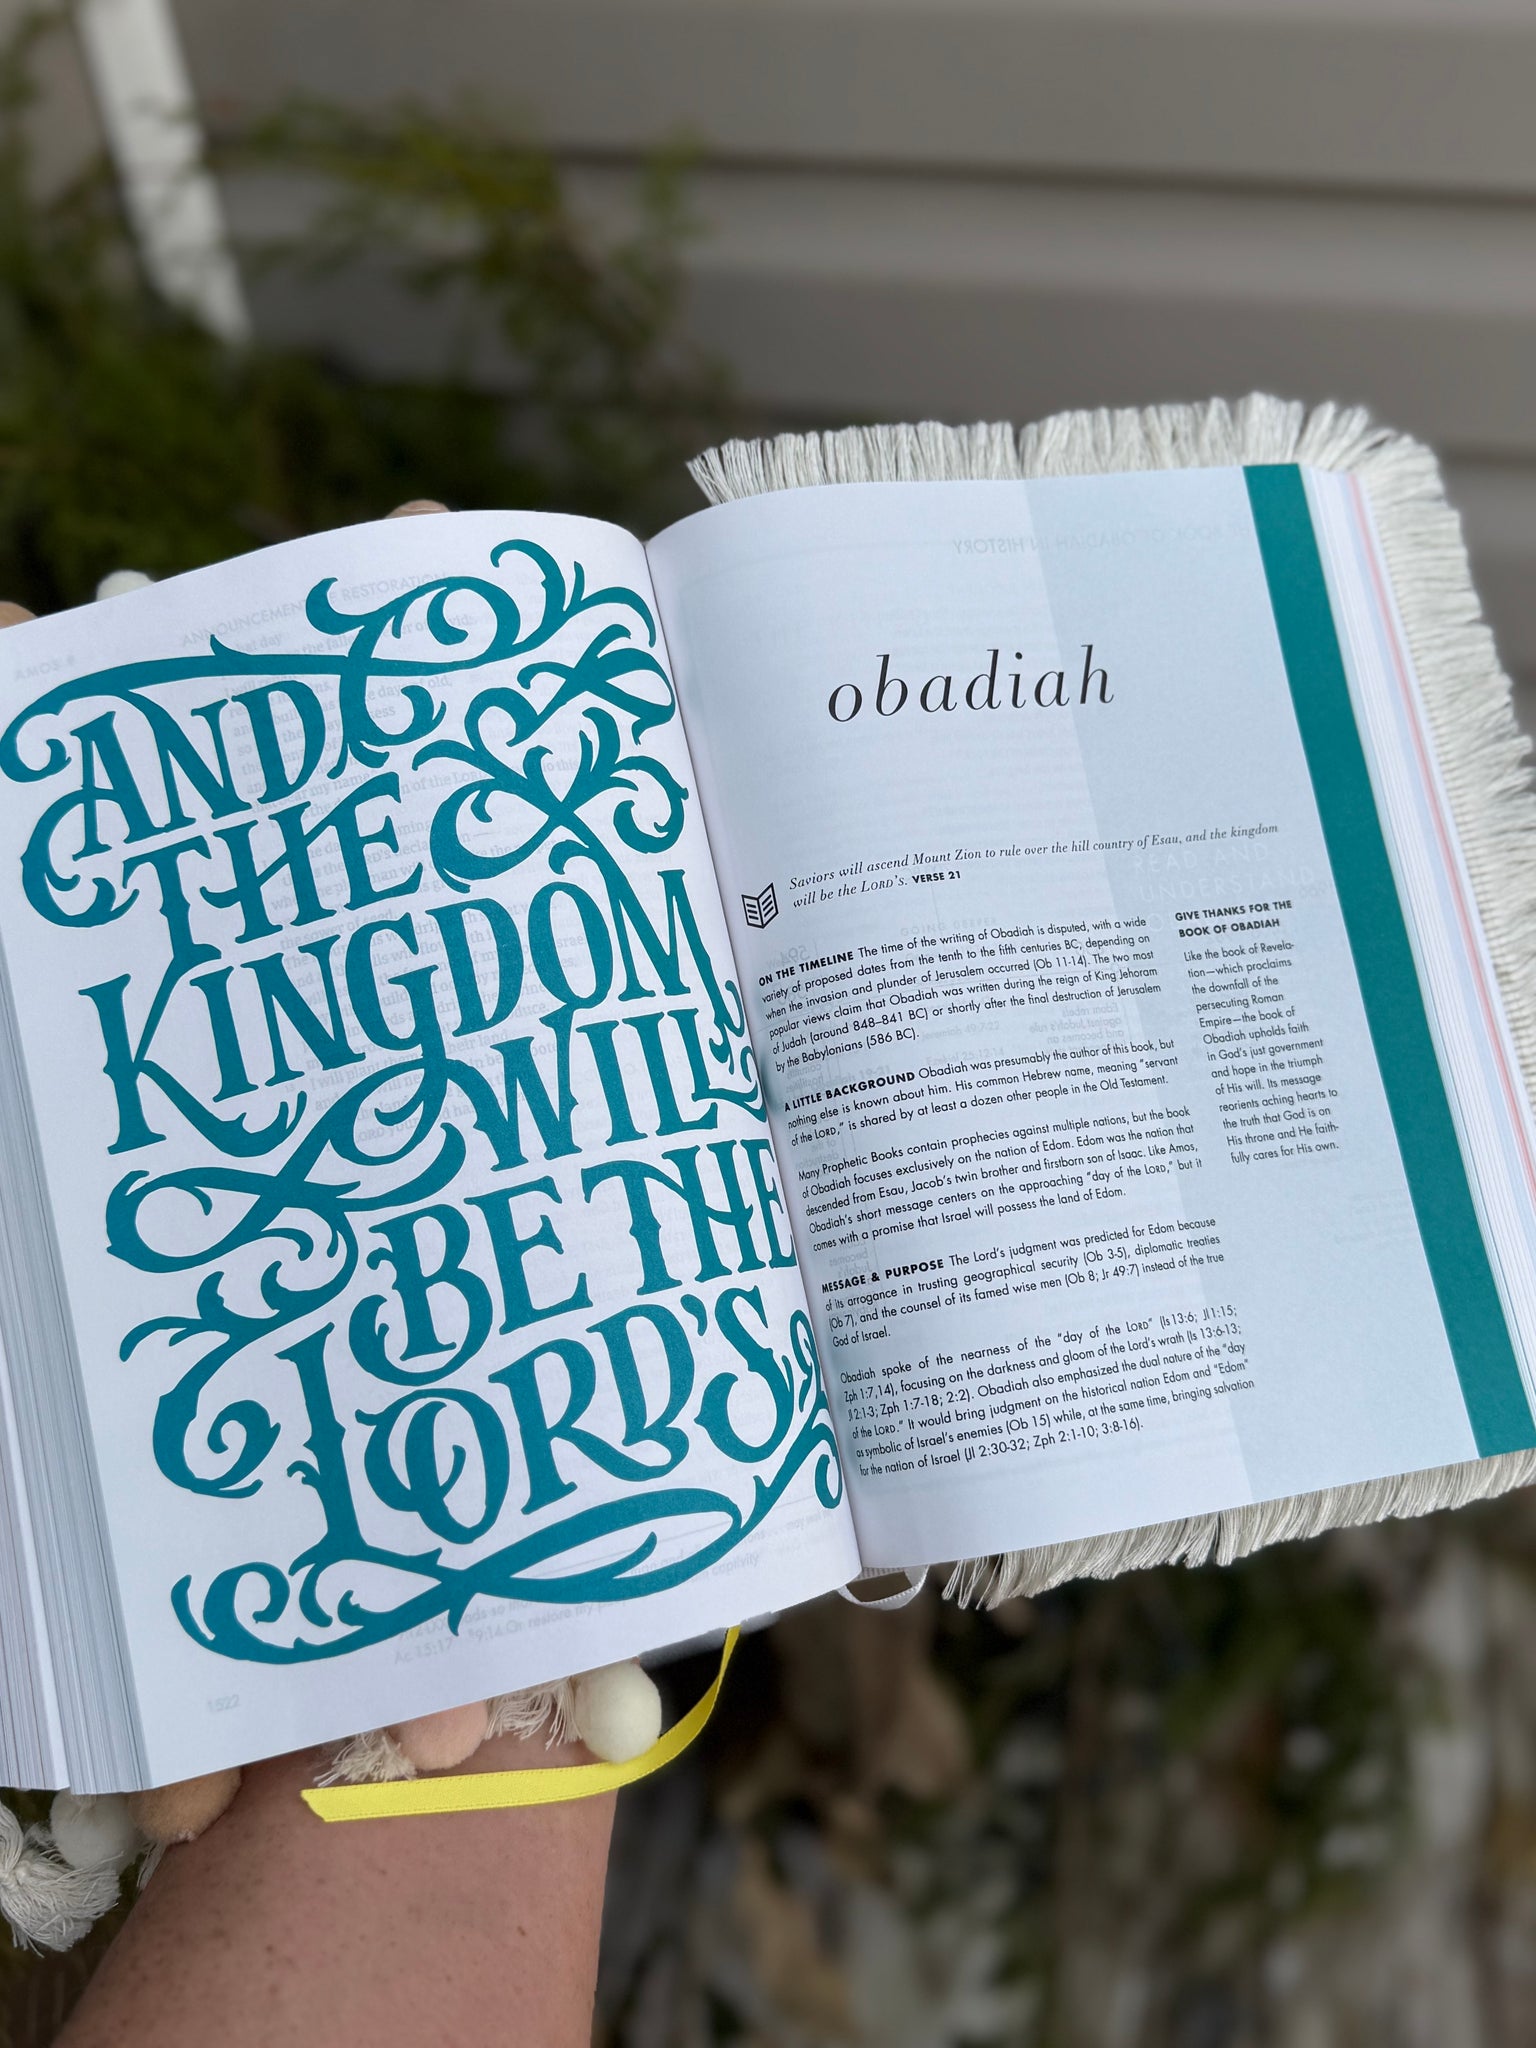 AND
THE
KINGDOM
WILL
BE THE
LORD'S
1522
obadiah
Saviors will ascend Mount Zion to rule over the hill country of Esau, and the kingdom
will be the LORD'S. VERSE 21
ON THE TIMELINE The time of the writing of Obadiah is disputed, with a wide
variety of proposed dates from the tenth to the fifth centuries BC, depending on
when the invasion and plunder of Jerusalem occurred (Ob 11-14). The two most
popular views claim that Obadiah was written during the reign of King Jehoram
of Judah (around 848–841 BC) or shortly after the final destruction of Jerusalem
by the Babylonians (586 BC).
A LITTLE BACKGROUND Obadiah was presumably the author of this book, but
nothing else is known about him. His common Hebrew name, meaning "servant
of the LORD," is shared by at least a dozen other people in the Old Testament.
Many Prophetic Books contain prophecies against multiple nations, but the book
of Obadiah focuses exclusively on the nation of Edom. Edom was the nation that
descended from Esau, Jacob's twin brother and firstborn son of Isaac. Like Amos,
Obadiah's short message centers on the approaching "day of the LORD," but it
comes with a promise that Israel will possess the land of Edom.
MESSAGE & PURPOSE The Lord's judgment was predicted for Edom because
of its arrogance in trusting geographical security (Ob 3-5), diplomatic treaties
(Ob 7), and the counsel of its famed wise men (Ob 8; Jr 49:7) instead of the true
God of Israel.
Obadiah spoke of the nearness of the "day of the LORD" (Is 13:6; Jl 1:15;
Zph 1:7,14), focusing on the darkness and gloom of the Lord's wrath (Is 13:6-13;
Jl 2:1-3; Zph 1:7-18; 2:2). Obadiah also emphasized the dual nature of the "day
of the LORD." It would bring judgment on the historical nation Edom and "Edom"
as symbolic of Israel's enemies (Ob 15) while, at the same time, bringing salvation
for the nation of Israel (Jl 2:30-32; Zph 2:1-10; 3:8-16).
GIVE THANKS FOR THE
BOOK OF OBADIAH
Like the book of Revela-
tion—which proclaims
the downfall of the
persecuting Roman
Empire—the book of
Obadiah upholds faith
in God's just government
and hope in the triumph
of His will. Its message
reorients aching hearts to
the truth that God is on
His throne and He faith-
fully cares for His own.